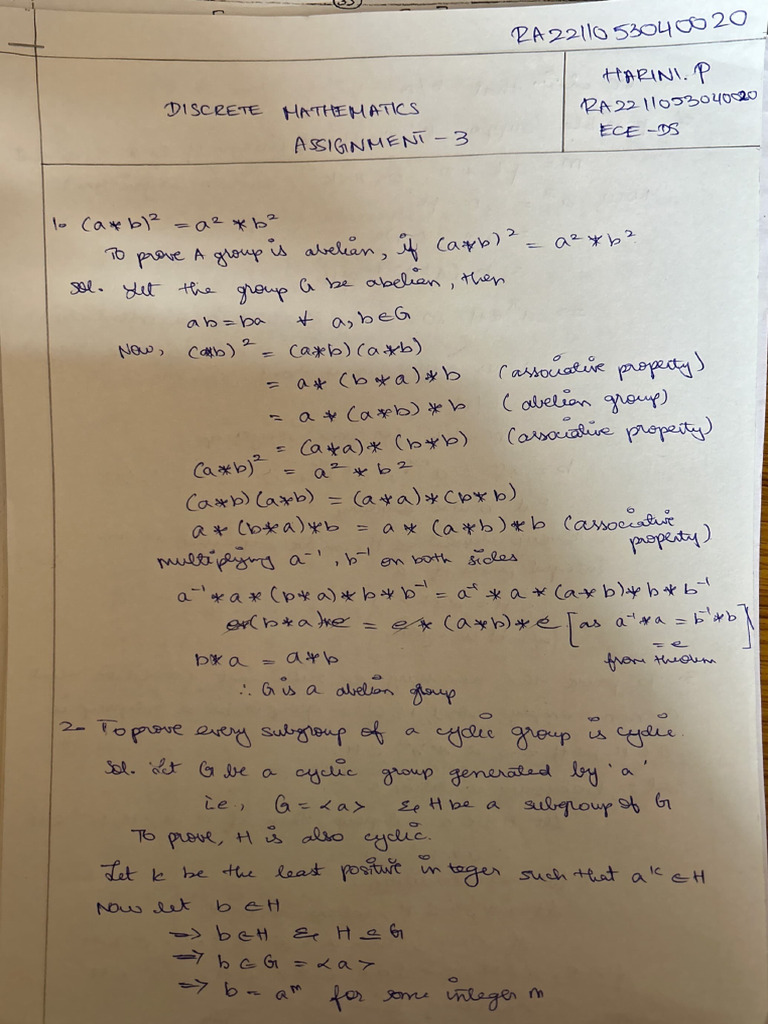 RA2211053040020
DISCRETE MATHEMATICS
ASSIGNMENT - 3
HARINI. P
RA2211053040020
ECE - DS
1. (a*b)² = a² * b²
To prove A group is abelian, if (a*b)² = a² * b²
Sol. Let the group G be abelian, then
ab = ba ∀ a, b ∈ G
Now, (a*b)² = (a*b)(a*b)
= a * (b*a) * b (associative property)
= a * (a*b) * b (abelian group)
= (a*a) * (b*b) (associative property)
(a*b)² = a² * b²
(a*b)(a*b) = (a*a) * (b*b)
a * (b*a) * b = a * (a*b) * b (associative property)
multiplying a⁻¹, b⁻¹ on both sides
a⁻¹ * a * (b*a) * b * b⁻¹ = a⁻¹ * a * (a*b) * b * b⁻¹
e*(b*a)*e = e * (a*b) * e [as a⁻¹*a = b⁻¹*b = e from theorem]
b*a = a*b
∴ G is a abelian group
2. To prove every subgroup of a cyclic group is cyclic.
Sol. Let G be a cyclic group generated by 'a'
i.e., G = <a> & H be a subgroup of G
To prove, H is also cyclic.
Let k be the least positive integer such that aᵏ ∈ H
Now let b ∈ H
⇒ b ∈ H & H ⊆ G
⇒ b ∈ G = <a>
⇒ b = aᵐ for some integer m